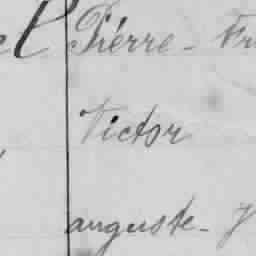 Pierre - Fr
Victor
auguste - J